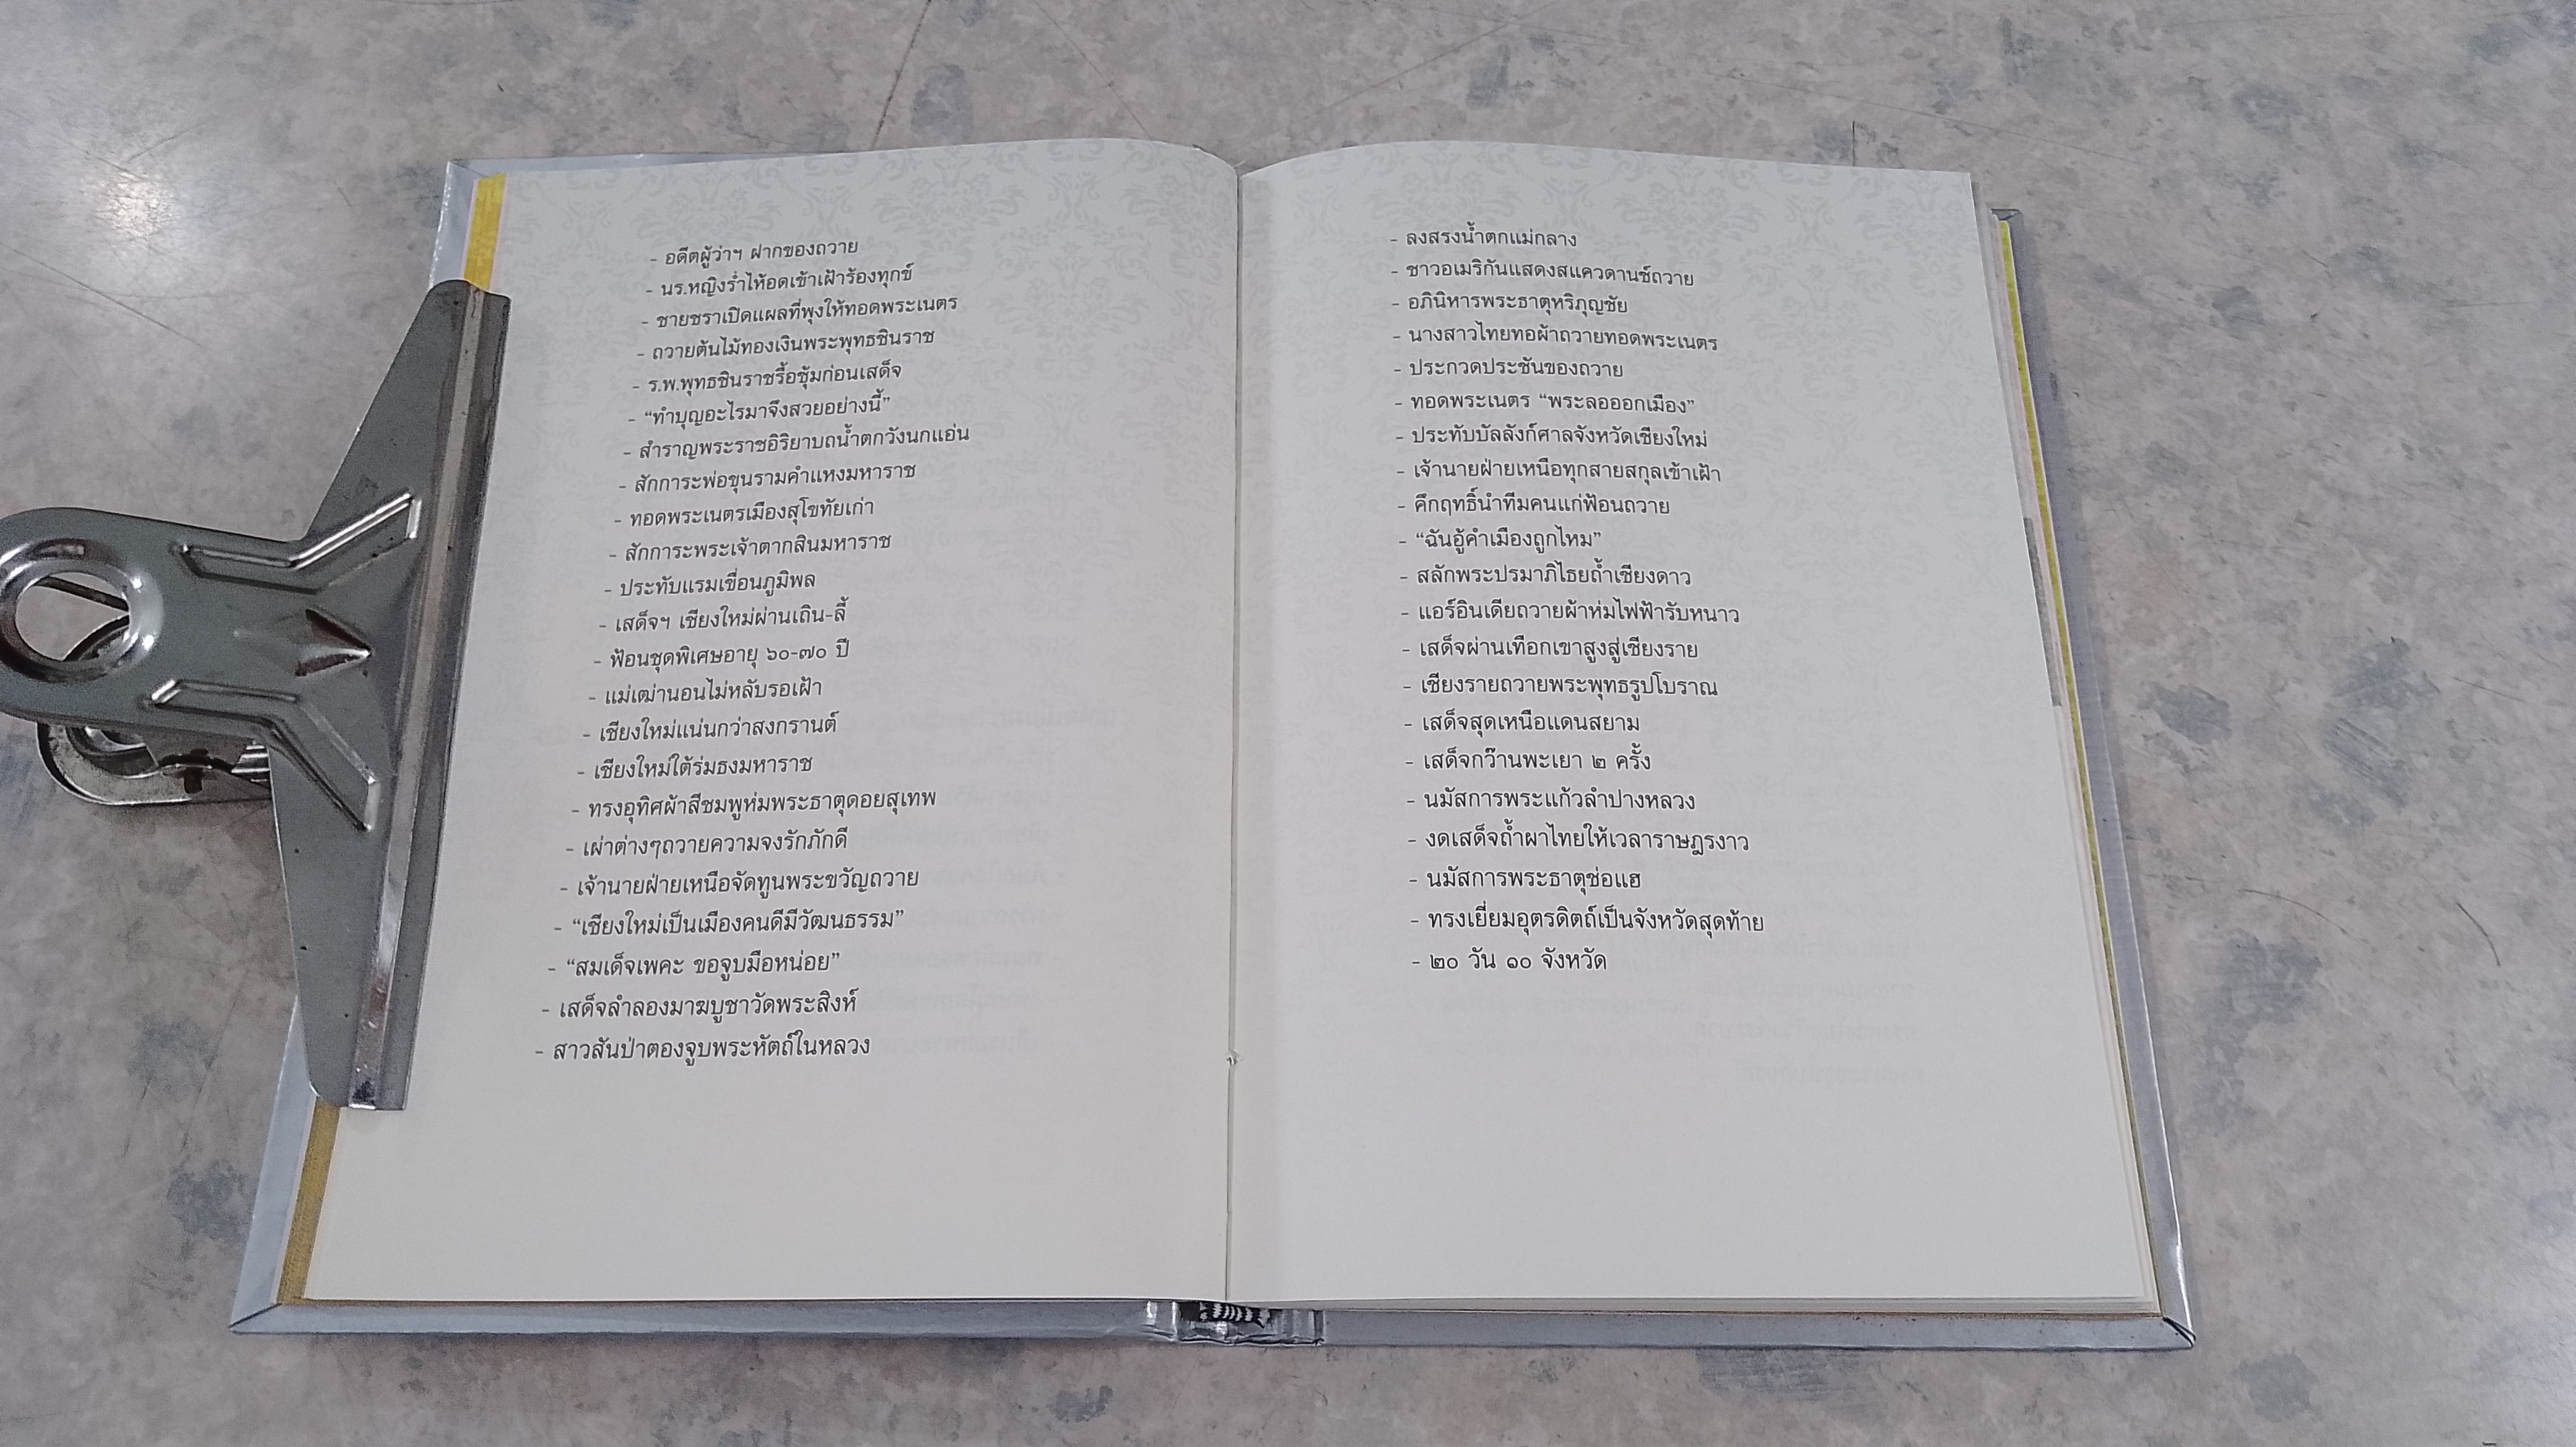 - อดีตผู้ว่าฯ ฝากของถวาย
- นร.หญิงร่ำไห้อดเข้าเฝ้าร้องทุกข์
- ชายชราเปิดแผลที่พุงให้ทอดพระเนตร
- ถวายต้นไม้ทองเงินพระพุทธชินราช
- ร.พ.พุทธชินราชรื้อซุ้มก่อนเสด็จ
- “ทำบุญอะไรมาจึงสวยอย่างนี้”
- สำราญพระราชอิริยาบถน้ำตกวังนกแอ่น
- สักการะพ่อขุนรามคำแหงมหาราช
- ทอดพระเนตรเมืองสุโขทัยเก่า
- สักการะพระเจ้าตากสินมหาราช
- ประทับแรมเขื่อนภูมิพล
- เสด็จฯ เชียงใหม่ผ่านเถิน-ลี้
- ฟ้อนชุดพิเศษอายุ ๖๐-๗๐ ปี
- แม่เฒ่านอนไม่หลับรอเฝ้า
- เชียงใหม่แน่นกว่าสงกรานต์
- เชียงใหม่ใต้ร่มธงมหาราช
- ทรงอุทิศผ้าสีชมพูห่มพระธาตุดอยสุเทพ
- เผ่าต่างๆถวายความจงรักภักดี
- เจ้านายฝ่ายเหนือจัดทูนพระขวัญถวาย
- “เชียงใหม่เป็นเมืองคนดีมีวัฒนธรรม”
- “สมเด็จเพคะ ขอจูบมือหน่อย”
- เสด็จลำลองมาฆบูชาวัดพระสิงห์
- สาวสันป่าตองจูบพระหัตถ์ในหลวง
- ลงสรงน้ำตกแม่กลาง
- ชาวอเมริกันแสดงสแควดานซ์ถวาย
- อภินิหารพระธาตุหริภุญชัย
- นางสาวไทยทอผ้าถวายทอดพระเนตร
- ประกวดประชันของถวาย
- ทอดพระเนตร “พระลอออกเมือง”
- ประทับบัลลังก์ศาลจังหวัดเชียงใหม่
- เจ้านายฝ่ายเหนือทุกสายสกุลเข้าเฝ้า
- คึกฤทธิ์นำทีมคนแก่ฟ้อนถวาย
- “ฉันอู้คำเมืองถูกไหม”
- สลักพระปรมาภิไธยถ้ำเชียงดาว
- แอร์อินเดียถวายผ้าห่มไฟฟ้ารับหนาว
- เสด็จผ่านเทือกเขาสูงสู่เชียงราย
- เชียงรายถวายพระพุทธรูปโบราณ
- เสด็จสุดเหนือแดนสยาม
- เสด็จกว๊านพะเยา ๒ ครั้ง
- นมัสการพระแก้วลำปางหลวง
- งดเสด็จถ้ำผาไทยให้เวลาราษฎรงาว
- นมัสการพระธาตุช่อแฮ
- ทรงเยี่ยมอุตรดิตถ์เป็นจังหวัดสุดท้าย
- ๒๐ วัน ๑๐ จังหวัด